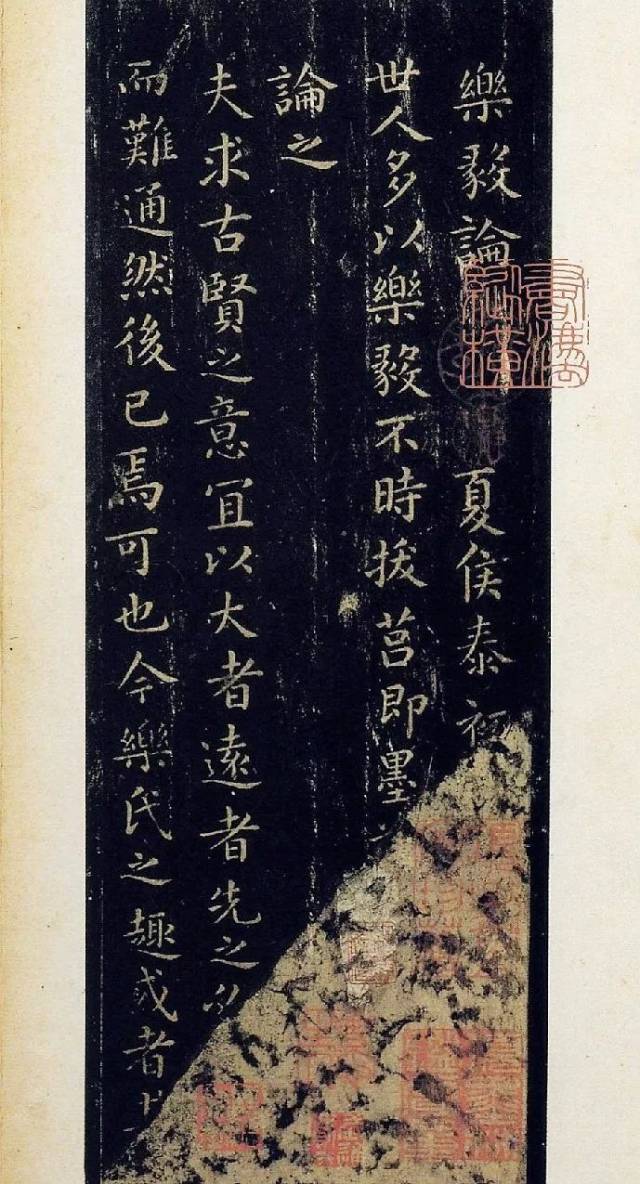 樂毅論 夏侯泰初
世人多以樂毅不時拔莒即墨
論之
夫求古賢之意宜以大者遠者先之必
而難通然後已焉可也今樂氏之趣或者